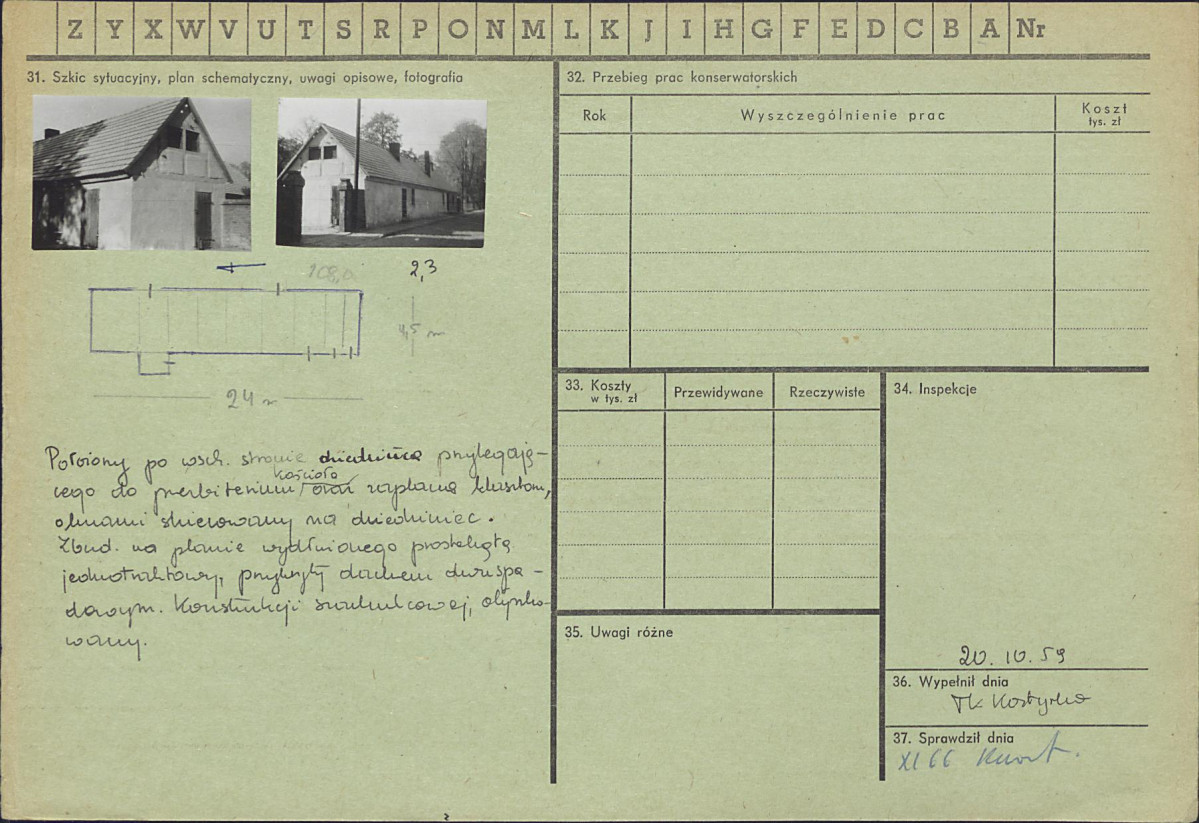 Z Y X W V U T S R P O N M L K J I H G F E D C B A Nr
31. Szkic sytuacyjny, plan schematyczny, uwagi opisowe, fotografia
108,0
2,3
4,5 m
24 m
Położony po wsch. stronie dziedzińca przylegają-
kościoła
cego do prezbiterium oraz zaplecza klasztoru,
oknami skierowany na dziedziniec.
Zbud. na planie wydłużonego prostokąta
jednotraktowy, przykryty dachem dwuspa-
dowym. Konstrukcji szachulcowej, otynko-
wany.
32. Przebieg prac konserwatorskich
Rok
Wyszczególnienie prac
Koszt
tys. zł
33. Koszty
w tys. zł
Przewidywane
Rzeczywiste
34. Inspekcje
35. Uwagi różne
20. 10. 59
36. Wypełnił dnia
Kostyrko
37. Sprawdził dnia
XI 66